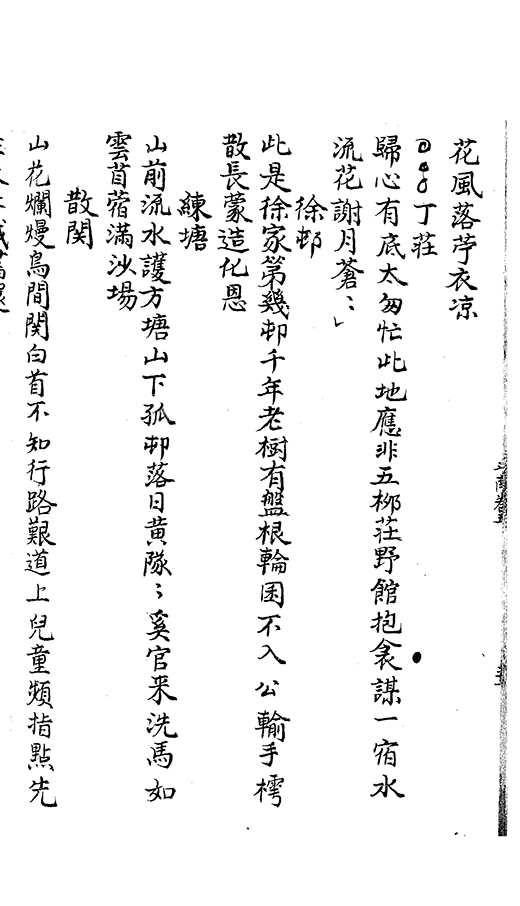 花風落芧衣凉
丁莊
歸心有底太匆忙此地應非五柳莊野館抱衾謀一宿水
流花謝月蒼〻
徐邨
此是徐家第幾邨千年老樹有盤根輪囷不入公輸手樗
散長蒙造化恩
練塘
山前流水護方塘山下孤邨落日黄隊〻奚官来洗馬如
雲苜蓿滿沙場
散関
山花爛熳鳥間関白首不知行路艱道上兒童頻指點先